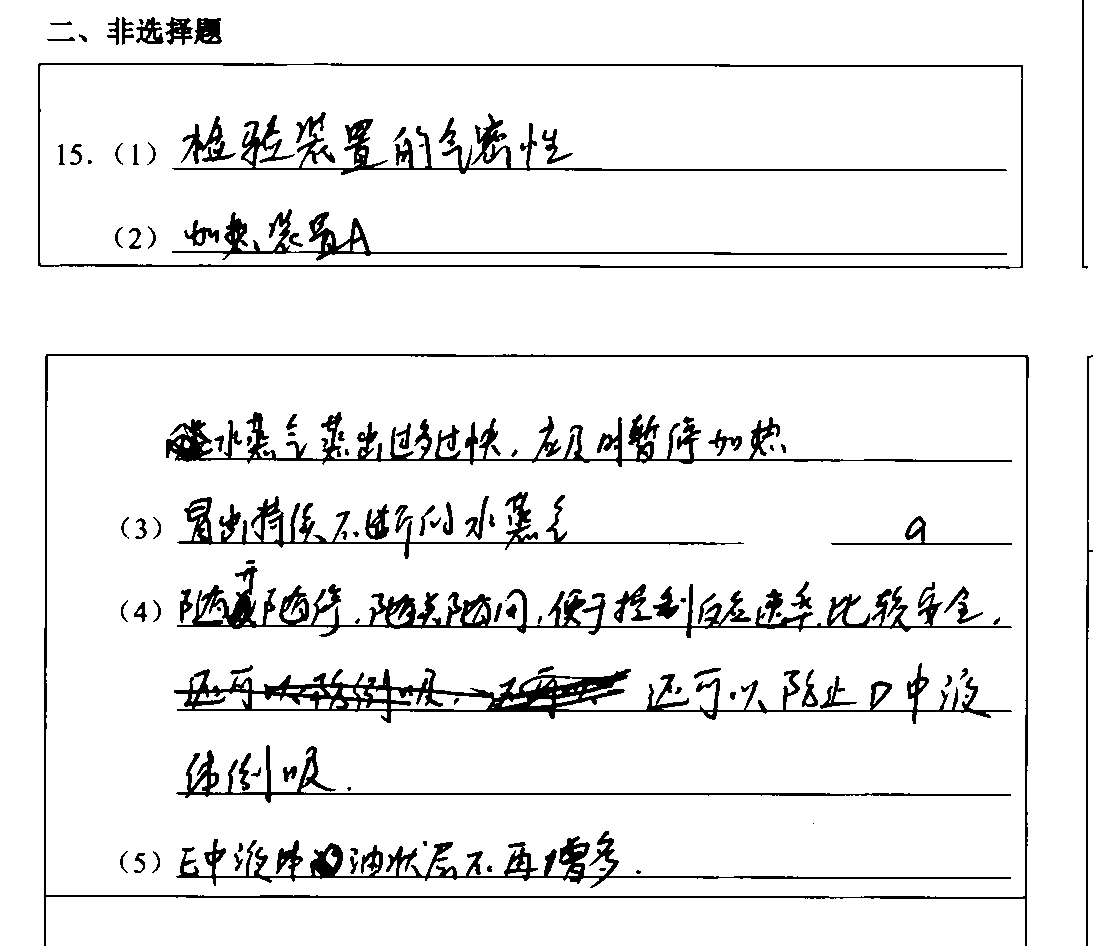 二、非选择题
15.（1）检验装置的气密性
（2）加热装置A
水蒸气蒸出过多过快，应及时暂停加热
（3）冒出持续不断的水蒸气 a
（4）随开随停，随关随闭，便于控制反应速率，比较安全，
还可以防止D中液
体倒吸．
（5）E中液体油状层不再增多．